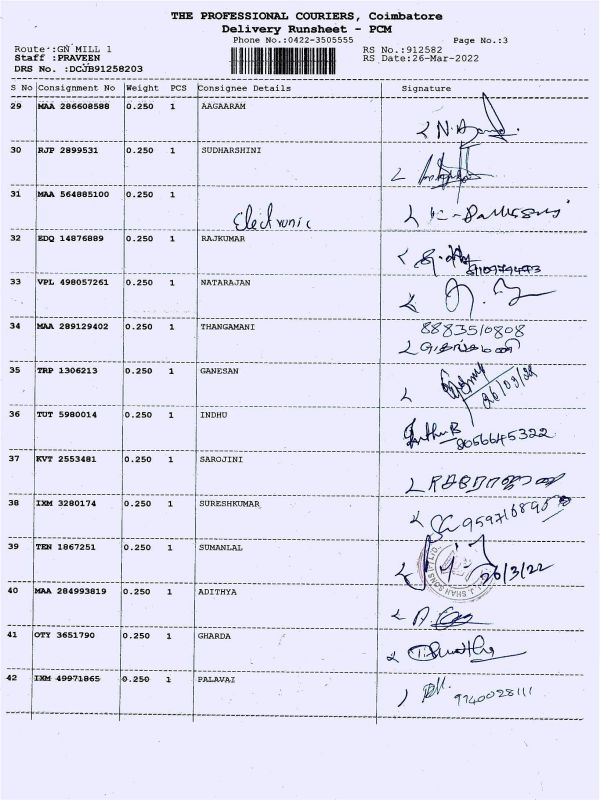 THE PROFESSIONAL COURIERS, Coimbatore
Delivery Runsheet - PCM
Phone No.:0422-3505555 Page No.:3
Route :GN MILL 1 RS No.:912582
Staff :PRAVEEN RS Date:26-Mar-2022
DRS No. :DCJB91258203
S No Consignment No Weight PCS Consignee Details Signature
29 MAA 286608588 0.250 1 AAGAARAM
30 RJP 2899531 0.250 1 SUDHARSHINI
31 MAA 564885100 0.250 1
Electronic
32 EDQ 14876889 0.250 1 RAJKUMAR
33 VPL 498057261 0.250 1 NATARAJAN
34 MAA 289129402 0.250 1 THANGAMANI 8883510808
35 TRP 1306213 0.250 1 GANESAN
26/03/22
36 TUT 5980014 0.250 1 INDHU
8056645322
37 KVT 2553481 0.250 1 SAROJINI
38 IXM 3280174 0.250 1 SURESHKUMAR
39 TEN 1867251 0.250 1 SUMANLAL
26/3/22
40 MAA 284993819 0.250 1 ADITHYA
41 OTY 3651790 0.250 1 GHARDA
42 IXM 49971865 0.250 1 PALAVAI
9740028111